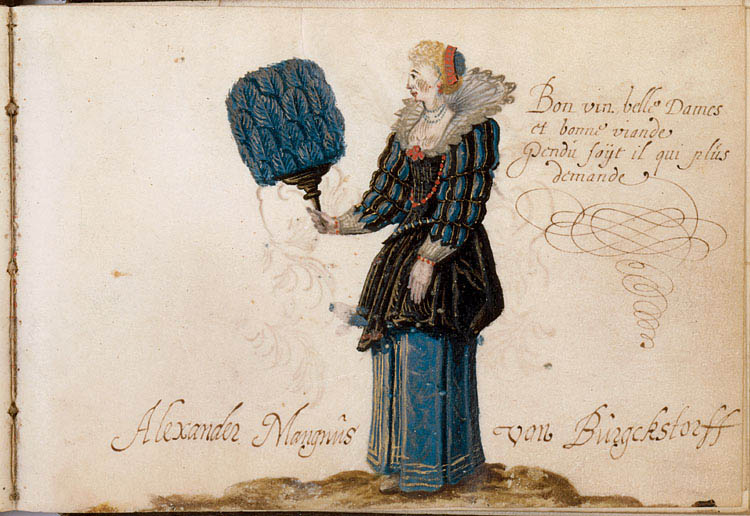 Bon vin, belle Dames
et bonne viande
Pendú soÿt il qui plús
demande
Alexander Mangnûs von Bûrgckstorff